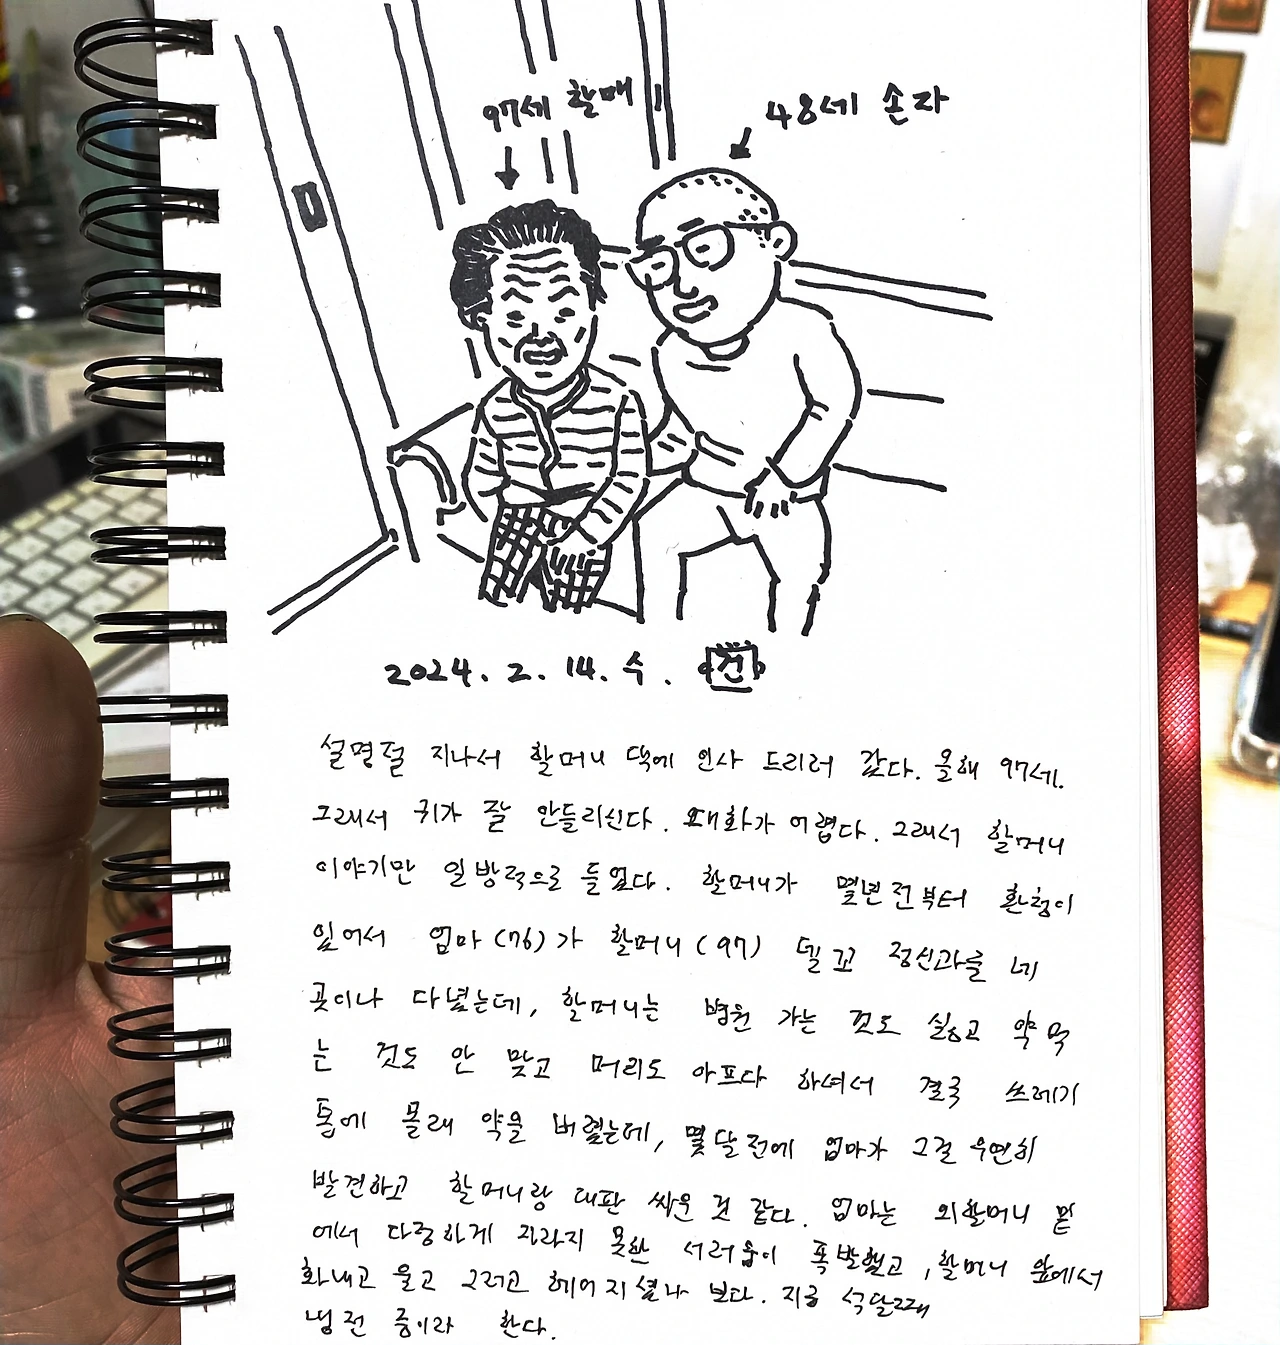 97세 할매
48세 손자
2024. 2. 14. 수. 건
설명절 지나서 할머니 댁에 인사 드리러 갔다. 올해 97세.
그래서 귀가 잘 안들리신다. 대화가 어렵다. 그래서 할머니
이야기만 일방적으로 들었다. 할머니가 몇년전부터 환청이
있어서 엄마(76)가 할머니(97) 델꼬 정신과를 네
곳이나 다녔는데, 할머니는 병원 가는 것도 싫고 약 먹
는 것도 안 맞고 머리도 아프다 하셔서 결국 쓰레기
통에 몰래 약을 버렸는데, 몇달전에 엄마가 그걸 우연히
발견하고 할머니랑 대판 싸운 것 같다. 엄마는 외할머니 밑
에서 다정하게 자라지 못한 서러움이 폭발했고, 할머니 앞에서
화내고 울고 그러고 헤어지셨나 보다. 지금 석달째
냉전 중이라 한다.